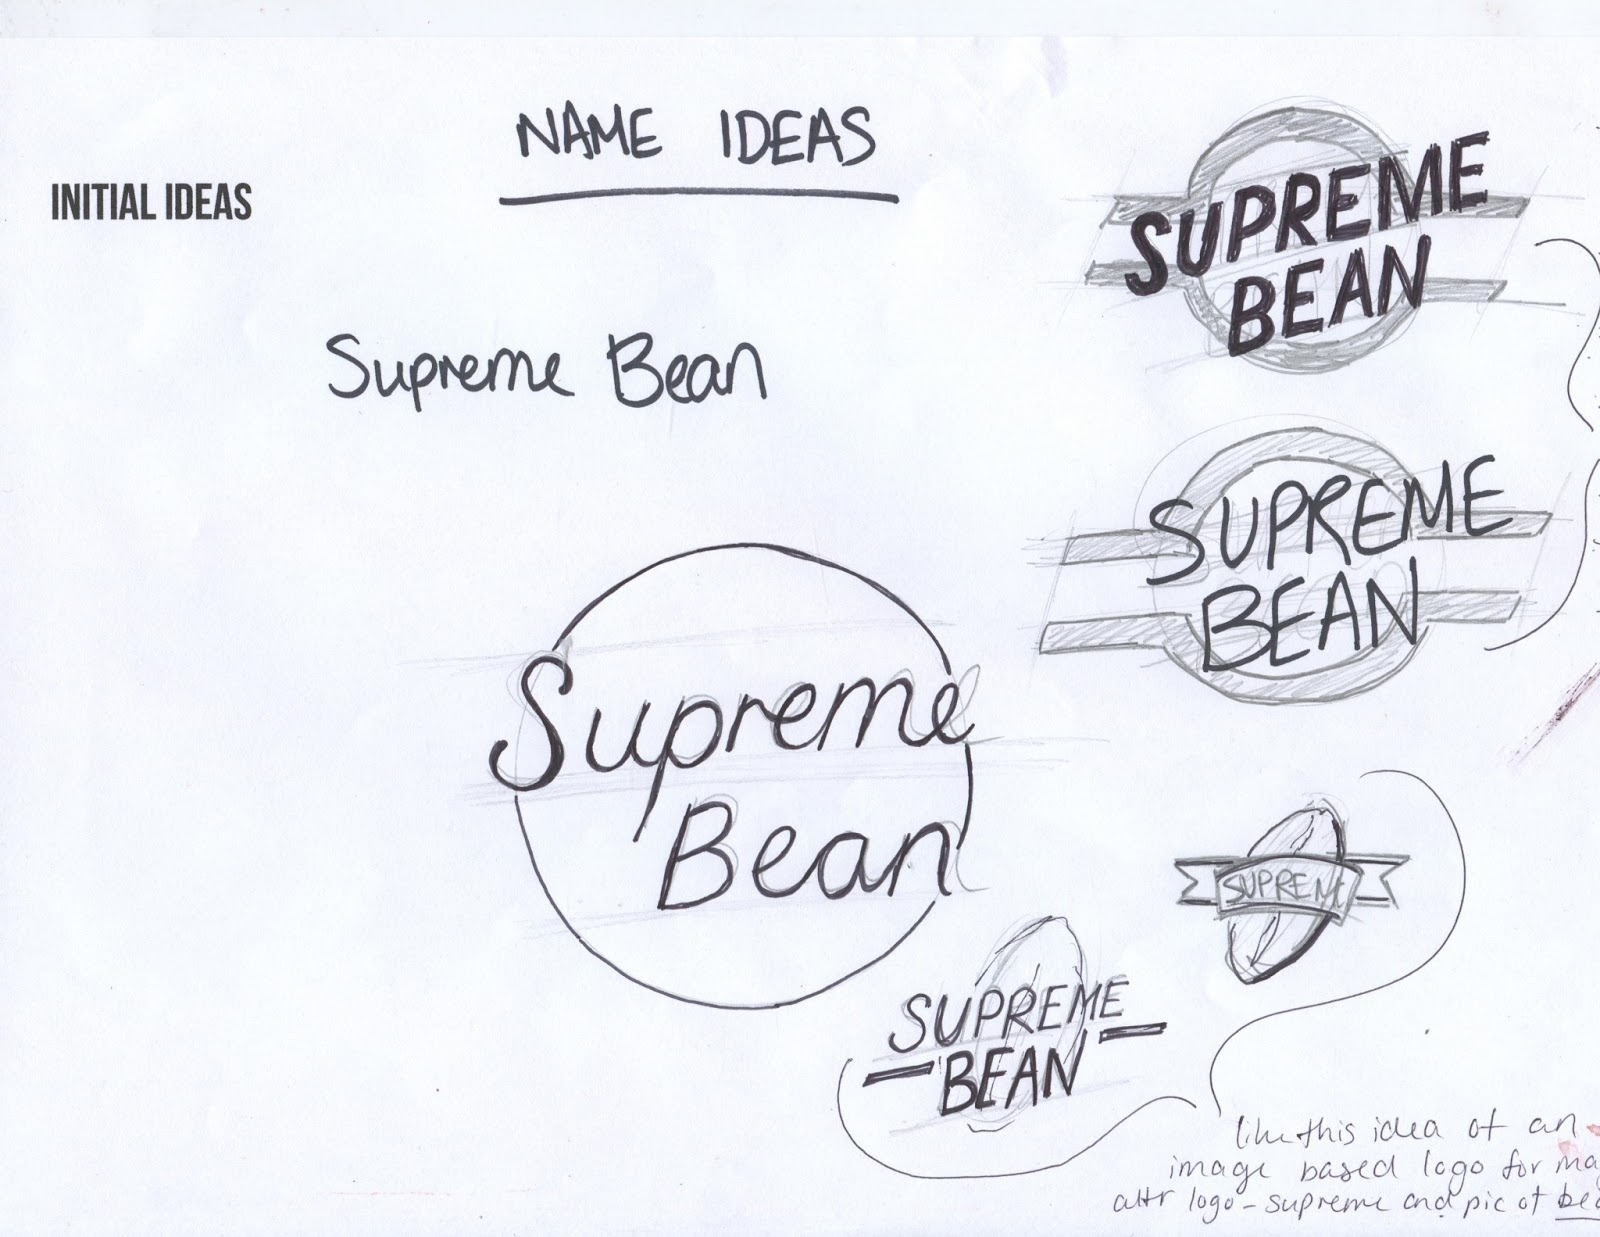 NAME IDEAS
INITIAL IDEAS
SUPREME
BEAN
Supreme Bean
SUPREME
BEAN
Supreme
Bean
SUPREME
SUPREME
BEAN
like this idea of an
image based logo for
altr logo - supreme and pic of